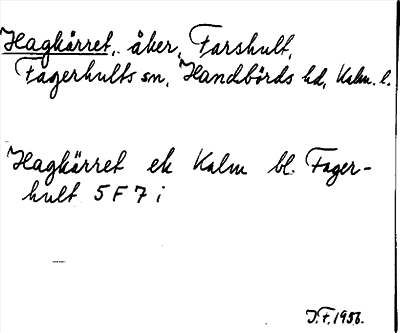 Hagkärret, åker, Farshult,
Fagerhults sn, Handbörds hd, Kalm. l.
Hagkärret ek Kalm bl. Fager-
hult 5 F 7 i
J.F. 1956.